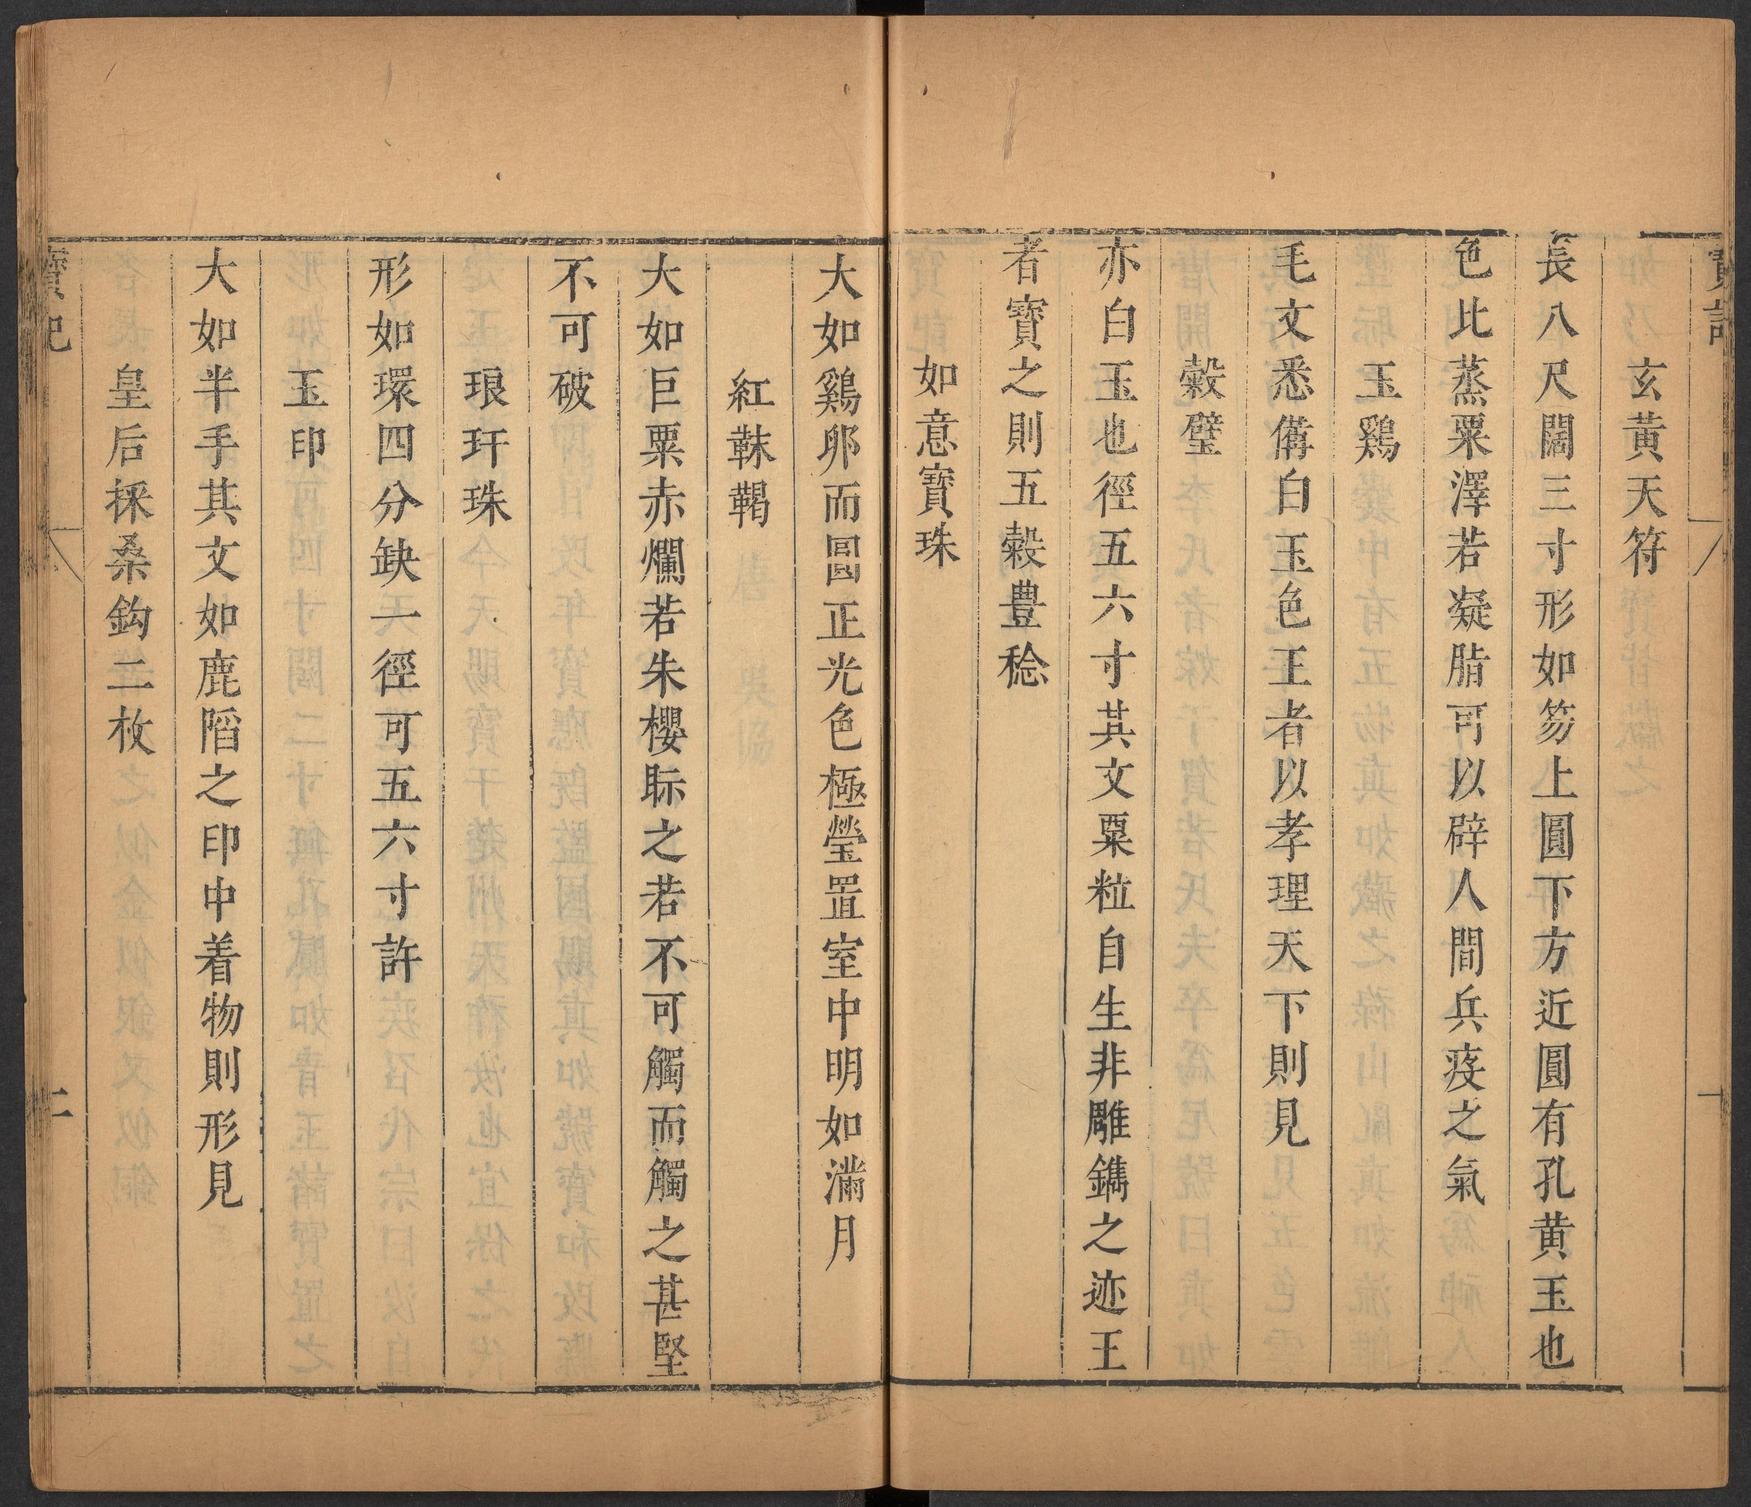 玄黃天符
長八尺闊三寸形如笏上圓下方近圓有孔黃玉也
色比蒸粟澤若凝脂可以辟人間兵疫之氣
玉鷄
毛文悉備白玉色王者以孝理天下則見
穀璧
亦白玉也徑五六寸其文粟粒自生非雕鐫之迹王
者寶之則五穀豊稔
如意寶珠
大如鷄卵而圓正光色極瑩置室中明如滿月
紅靺鞨
大如巨粟赤爛若朱櫻眎之若不可觸而觸之甚堅
不可破
琅玕珠
形如環四分缺一徑可五六寸許
玉印
大如半手其文如鹿陷之印中着物則形見
皇后採桑鈎二枚
寶記
二